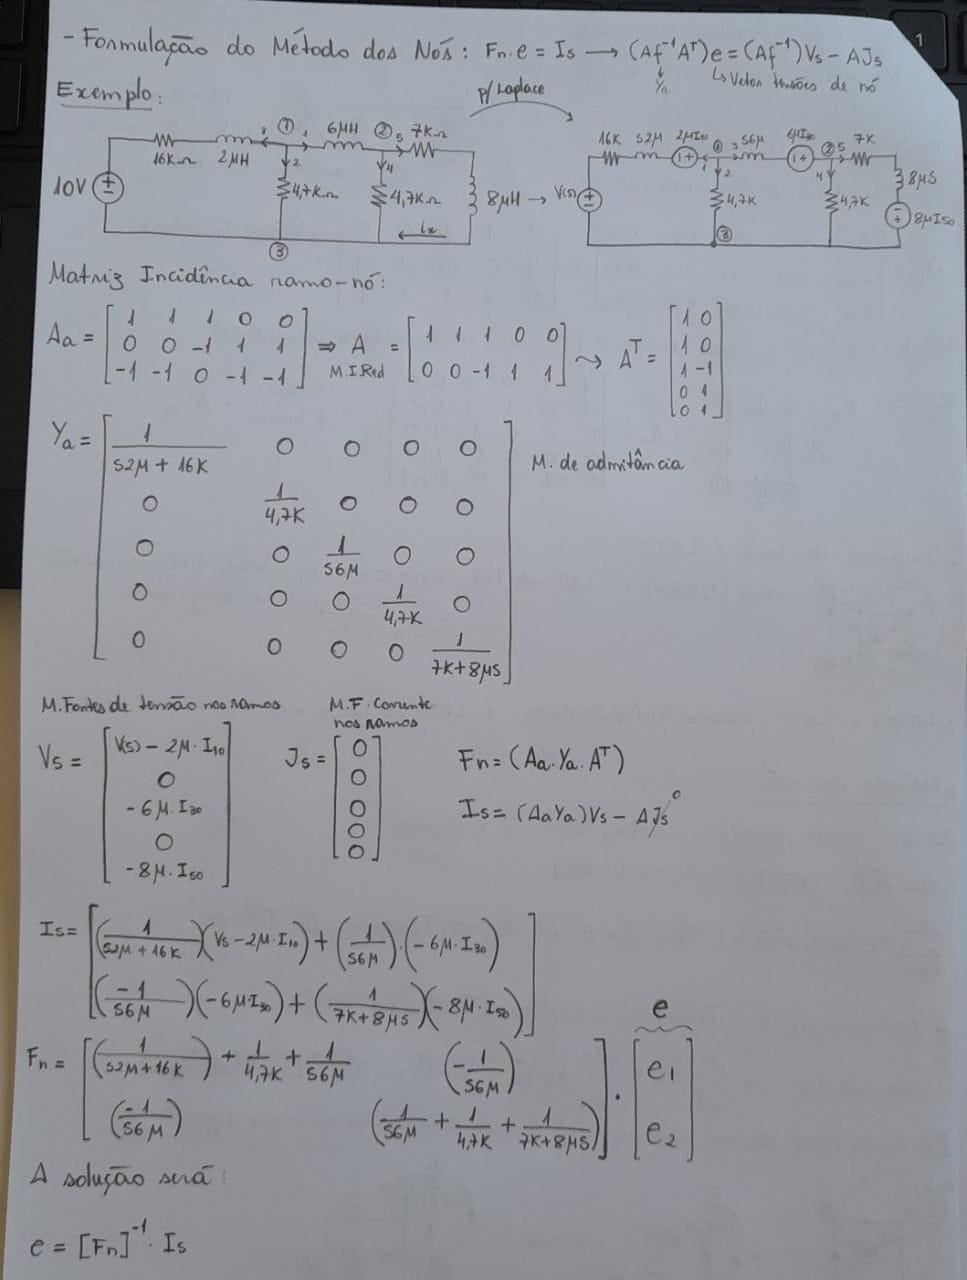 1
- Formulação do Método dos Nós: Fn.e = Is → (Af⁻¹Aᵀ)e = (Af⁻¹)Vs - AJs
Ya
↳ Vetor tensões de nó
Exemplo:
P/ Laplace
16KΩ 2µH ① 1 6µH ② 5 7KΩ
2 4
10V 4,7KΩ 4,7KΩ 8µH →
ix
③
16K S2µ 2µI10 ① 3 S6µ 6µI30 ② 5 7K
1 2 4
V(s) 4,7K 4,7K 8µS
8µI50
③
Matriz Incidência ramo-nó:
Aa = [1 1 1 0 0; 0 0 -1 1 1; -1 -1 0 -1 -1] ⇒ A = [1 1 1 0 0; 0 0 -1 1 1] ⤳ Aᵀ = [1 0; 1 0; 1 -1; 0 1; 0 1]
M.I.Red
Ya = [1/(S2µ + 16K) 0 0 0 0
0 1/4,7K 0 0 0
0 0 1/S6µ 0 0
0 0 0 1/4,7K 0
0 0 0 0 1/(7K+8µS)]
M. de admitância
M.Fontes de tensão nos ramos
M.F. Corrente nos ramos
Vs = [V(s) - 2µ.I10; 0; -6µ.I30; 0; -8µ.I50]
Js = [0; 0; 0; 0; 0]
Fn = (Aa.Ya.Aᵀ)
Is = (AaYa)Vs - AJs 0
Is = [(1/(S2µ + 16K))(Vs - 2µ.I10) + (1/S6µ).(-6µ.I30)
(-1/S6µ)(-6µ.I30) + (1/(7K+8µS))(-8µ.I50)]
Fn = [(1/(S2µ+16K)) + 1/4,7K + 1/S6µ (-1/S6µ)
(-1/S6µ) (1/S6µ + 1/4,7K + 1/(7K+8µS))] . [e1; e2]
e
A solução será:
e = [Fn]⁻¹. Is